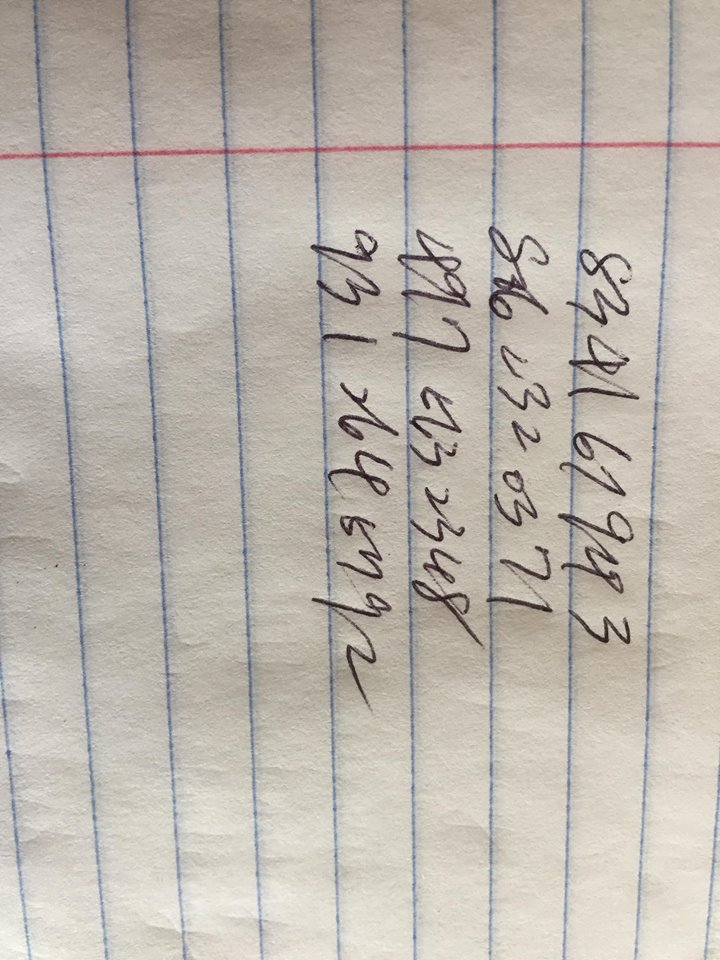 8341 67943
806 232 0371
497 563 2348
931 264 5792